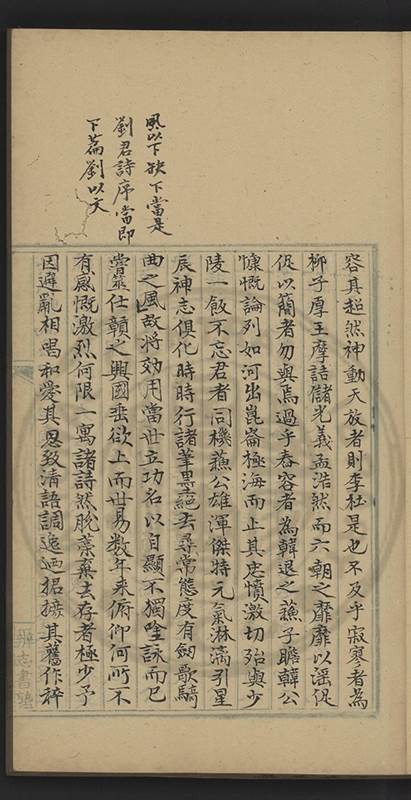 風以下缺下當是
劉君詩序當即
下篇劉以文
容真超然神動天放者則李杜是也不及乎寂寥者為
柳子厚王摩詰儲光義孟浩然而六朝之靡靡以淫促
促以簡者勿與焉過乎舂容者為韓退之蘓子瞻韓公
慷慨論列如河出崑崙極海而止其忠憤激切殆與少
陵一飯不忘君者同機蘓公雄渾傑特元氣淋漓引星
辰神志俱化時時行諸筆墨絕去尋常態度有劒歌騎
曲之風故將効用當世立功名以自顯不獨唫詠而已
嘗筮仕贛之興國垂欲上而世易数年來俯仰何所不
有感慨激烈何限一寓諸詩然脫藁棄去存者極少予
因避亂相唱和愛其思致清語調逸迺掇摭其舊作稡